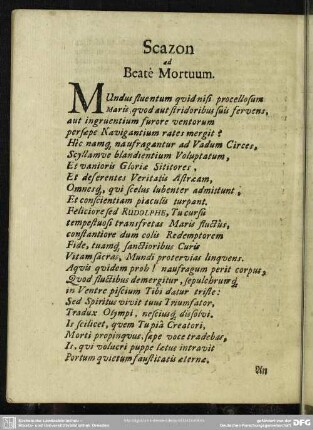 Scazon
ad
Beatè Mortuum.
MUndus fluentum qvid nisi procellosum
Maris, qvod aut stridoribus suis fervens,
aut ingruentium furore ventorum
persæpe Navigantium rates mergit?
Hîc namq; naufragantur ad Vadum Circes,
Scyllamve blandientium Voluptatum,
Et vanioris Gloriæ Sititores,
Et deserentes Veritatis Astræam,
Omnesq;, qvi scelus lubenter admittunt,
Et conscientiam piaculis turpant.
Feliciore sed RUDOLPHE, Tu cursu
tempestuosi transfretas Maris fluctûs,
constantiore dum colis Redemptorem
Fide, tuamq; sanctioribus Curis
Vitam sacras, Mundi protervias linqvens.
Aqvis qvidem proh! naufragum perit corpus,
Qvod fluctibus demergitur, sepulchrumq;
in Ventre piscium Tibi datur triste:
Sed Spiritus vivit tuus Triumfator,
Tradux Olympi, nesciusq; dissolvi.
Is scilicet, qvem Tu piâ Creatori,
Morti propinqvus, sæpe voce tradebas,
Is, qvi volucri puppe lætus intravit
Portum qvietum faustitatis æternæ,